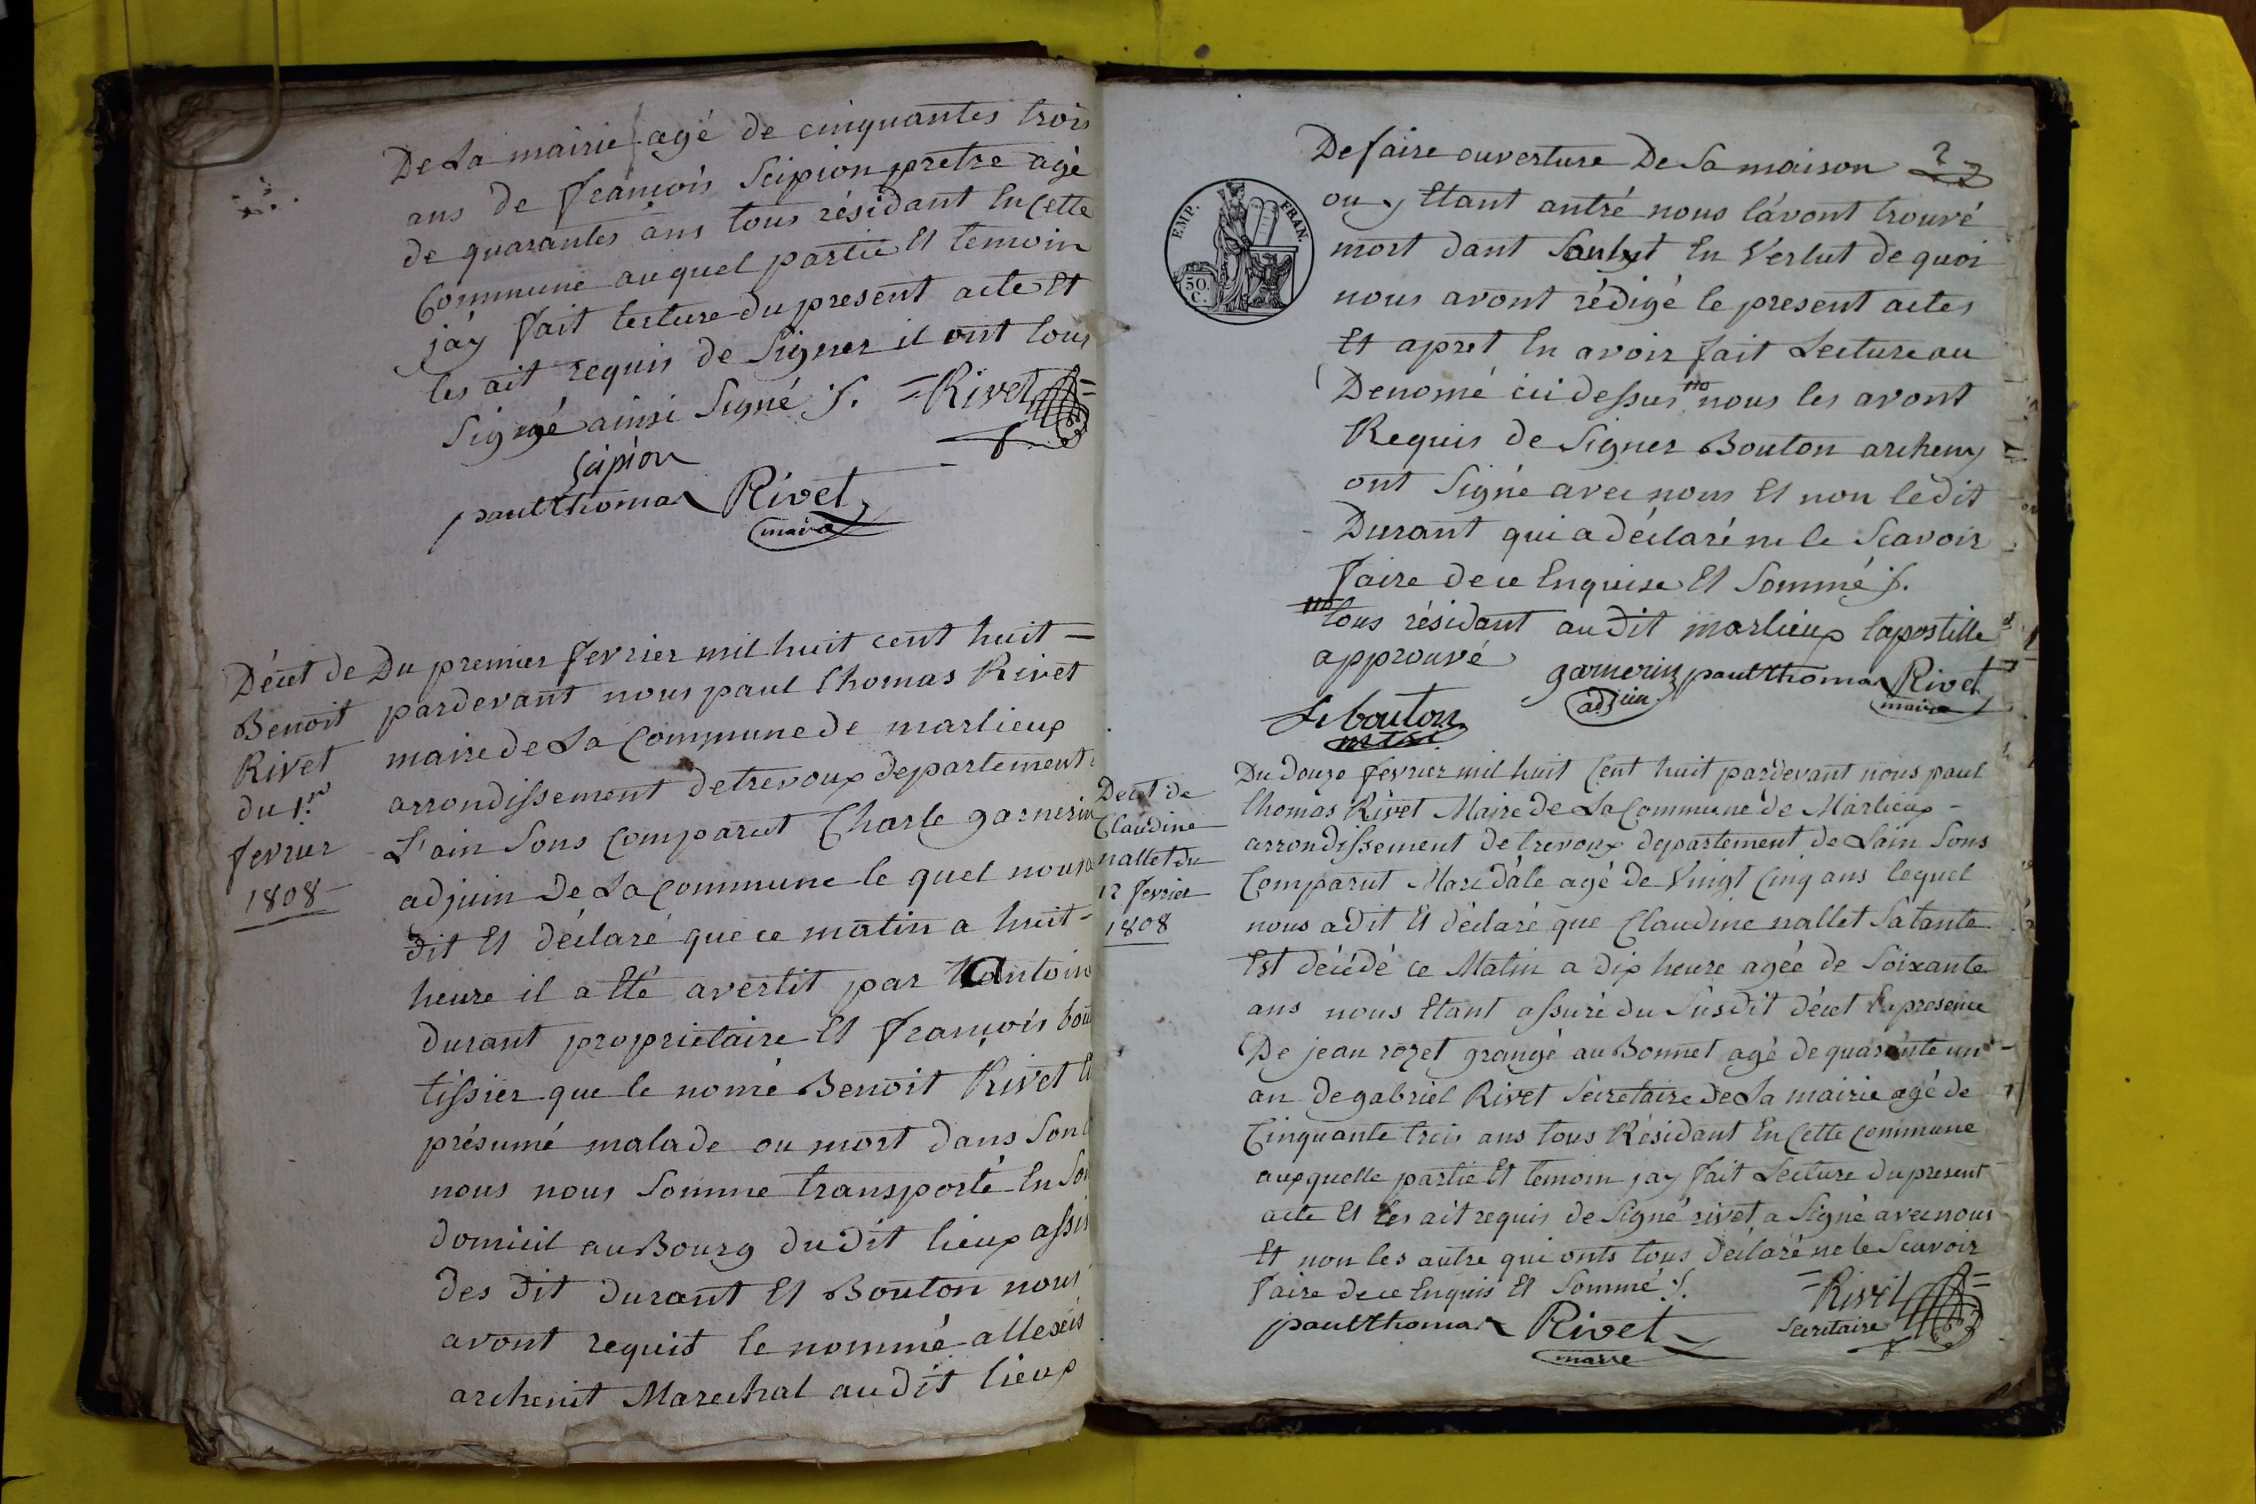 De La mairie agé de cinquantes trois
ans de François Scipion pretre agé
de quarantes ans tous résidant En Cette
Commune au quel partie Et temoin
j'ay fait lecture du present acte Et
les ait requis de Signer il ont tous
Signé ainsi Signé ·/. =Rivet=
Scipion
paul thomas Rivet
maire
Décet de
Benoit
Rivet
du 1.er
fevrier
1808
Du premier fevrier mil huit cent huit —
pardevant nous paul thomas Rivet
maire de La Commune de marlieux
arrondissement de trevoux departement
L'ain Sons Comparut Charle garnerin
adjuin De La Commune le quel nous a
dit Et déclaré que ce matin a huit-
heure il a Eté avertit par antoine
durant proprietaire Et François bou
tissier que le nomé Benoit Rivet
présumé malade ou mort dans Son
nous nous Somme transporté En Son
domicil au Bourg du dit lieux assis
des dit durant Et Bouton nous
avont requit le nommé allexcis
archenit Marechal au dit lieux
De faire ouverture De Sa maison 2
EMP. FRAN.
50. C.
ou y Etant antré nous l'avont trouvé
mort dant En Vertut de quoi
nous avont rédigé le present actes
Et apret En avoir fait Lecture au
Denomé ici dessus nous les avont
Requis de Signer Bouton archeny
ont Signé avec nous Et non le dit
Durant qui a déclaré ne le Scavoir
faire de ce Enquise Et Sommé ·/.
tous résidant au dit marlieux lapostille
approuvé garnerin paul thomas Rivet
adjuin. maire
Le bouton
Decet de
Claudine
nallet du
12 fevrier
1808
Du douze fevrier mil huit Cent huit pardevant nous paul
thomas Rivet Maire de La Commune de Marlieux -
arrondissement de trevoux departement de Lain Sons
Comparut Marc dále agé de Vingt Cinq ans lequel
nous a dit Et déclaré que Claudine nallet Sa tante
Est décédé ce Matin a dix heure agée de Soixante
ans nous Etant assuré du Susdit décet En presence
De jean rozet grangé au Bonnet agé de quarante un
an de gabriel Rivet Sécretaire de La mairie agé de
Cinquante trois ans tous Résidant En Cette Commune
auxquelle partie Et temoin jay fait Lecture du present
acte Et les ait requis de Signé rivet a Signé avec nous
Et non les autre qui onts tous déclaré ne le Scavoir
faire de ce Enquis Et Sommé ·/. =Rivet=
paul thomas Rivet Secretaire
maire